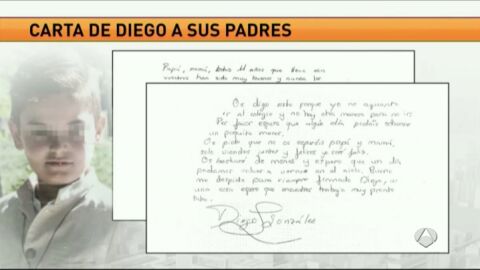 CARTA DE DIEGO A SUS PADRES
Papá, mamá, estos 11 años que llevo con
vosotros han sido muy buenos y nunca los
Os digo esto porque yo no aguanto
ir al colegio y no hay otra manera para no ir.
Por favor espero que algún día podáis odiarme
un poquito menos.
Os pido que no os separéis papá y mamá,
solo viéndoos juntos y felices yo seré feliz.
Os echaré de menos y espero que un día
podamos volver a vernos en el cielo. Bueno
me despido para siempre firmado Diego, a
una cosa espero que encuentres trabajo muy pronto
Diego González